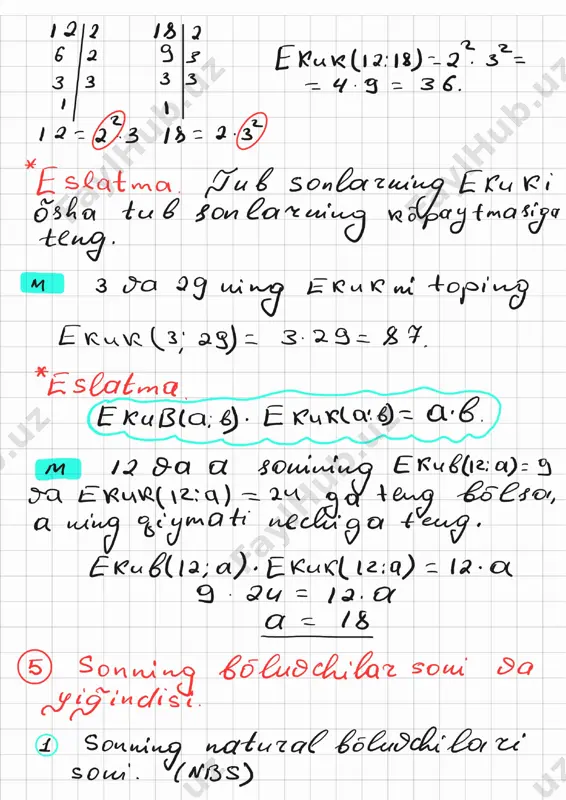 12 | 2   18 | 2
6 | 2   9 | 3   Ekuk(12:18) = 2²· 3² =
3 | 3   3 | 3   = 4·9 = 36.
1 |   1 |
12 = 2²·3   18 = 2·3²
*Eslatma. Tub sonlarning Ekuki
õsha tub sonlarning kõpaytmasiga
teng.
M 3 va 29 ning Ekuk ni toping
Ekuk(3; 29) = 3·29 = 87.
*Eslatma.
Ekub(a; b)· Ekuk(a:b) = a·b.
M 12 va a sonining Ekub(12;a) = 9
va Ekuk(12;a) = 24 ga teng bõlsa,
a ning qiymati nechiga teng.
Ekub(12;a)·Ekuk(12;a) = 12·a
9 · 24 = 12·a
a = 18
5 Sonning bõluvchilar soni va
yig̃indisi.
1 Sonning natural bõluvchilari
soni. (NBS)
FaylHub.uz
FaylHub.uz
FaylHub.uz